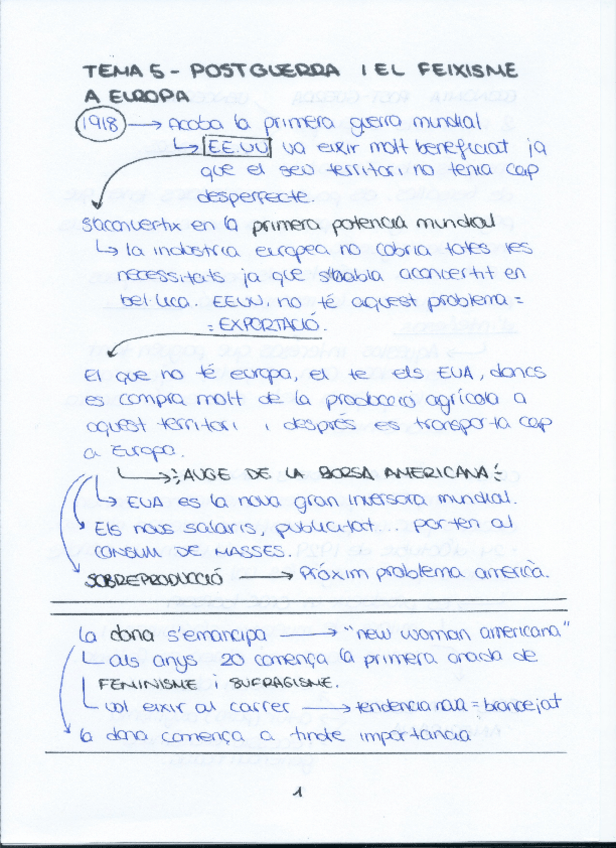 TEMA 5 - POSTGUERRA I EL FEIXISME
A EUROPA
1918 → Acaba la primera guerra mundial
↳ EE.UU va eixir molt beneficiat ja
que el seu territori no tenia cap
desperfecte.
S'aconvertix en la primera potencia mundial
↳ la industria europea no cobria totes les
necessitats ja que s'habia aconvertit en
bel·lica. EEUU, no té aquest problema =
= EXPORTACIÓ.
El que no té europa, el te els EUA, doncs
es compra molt de la producció agrícola a
aquest territori i després es transporta cap
a Europa.
↳ AUGE DE LA BORSA AMERICANA
↳ EUA es la nova gran inversora mundial.
Els nous salaris, publicitat... porten al
CONSUM DE MASSES.
SOBREPRODUCCIÓ → Próxim problema americà.
La dona s'emancipa → "new woman americana"
als anys 20 comença la primera onada de
FEMINISME i SUFRAGISME.
vol eixir al carrer → tendencia nova = broncejat
la dona comença a tindre importancia
1